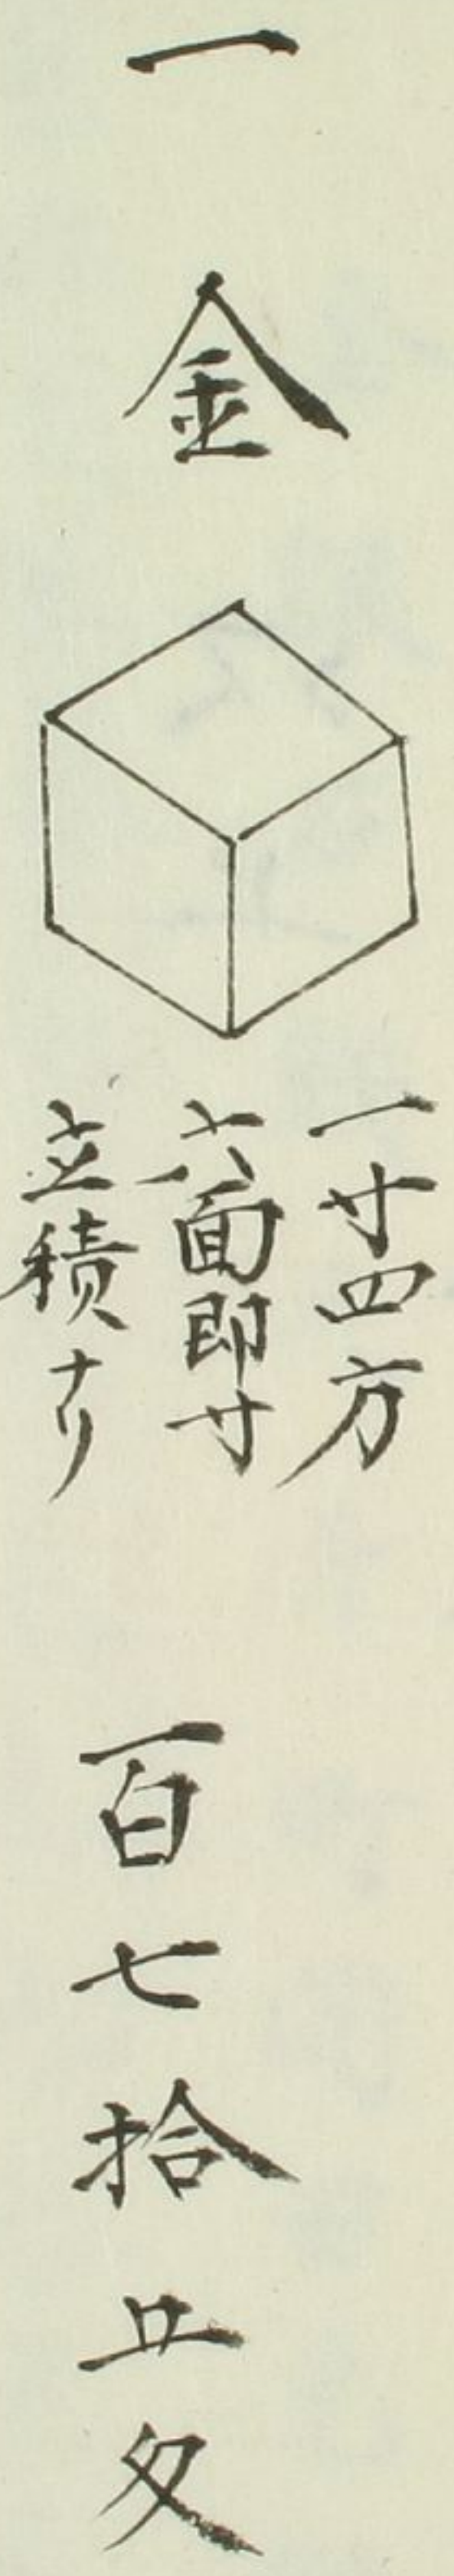 一 金
一寸四方
六面即寸
立積ナリ
百七拾五匁